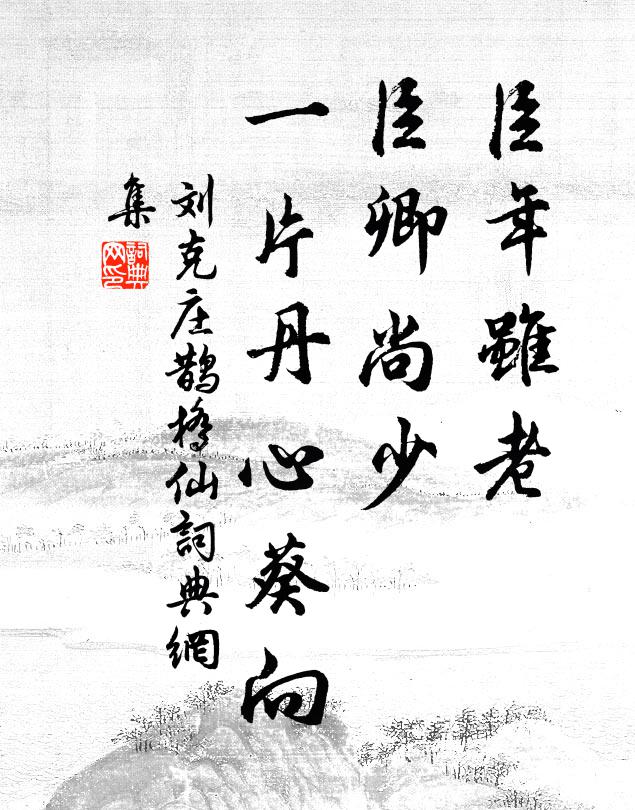 臣年雖老
臣卿尚少
一片丹心葵向
刘克庄鵲橋仙詞典網
集
詞典
网印